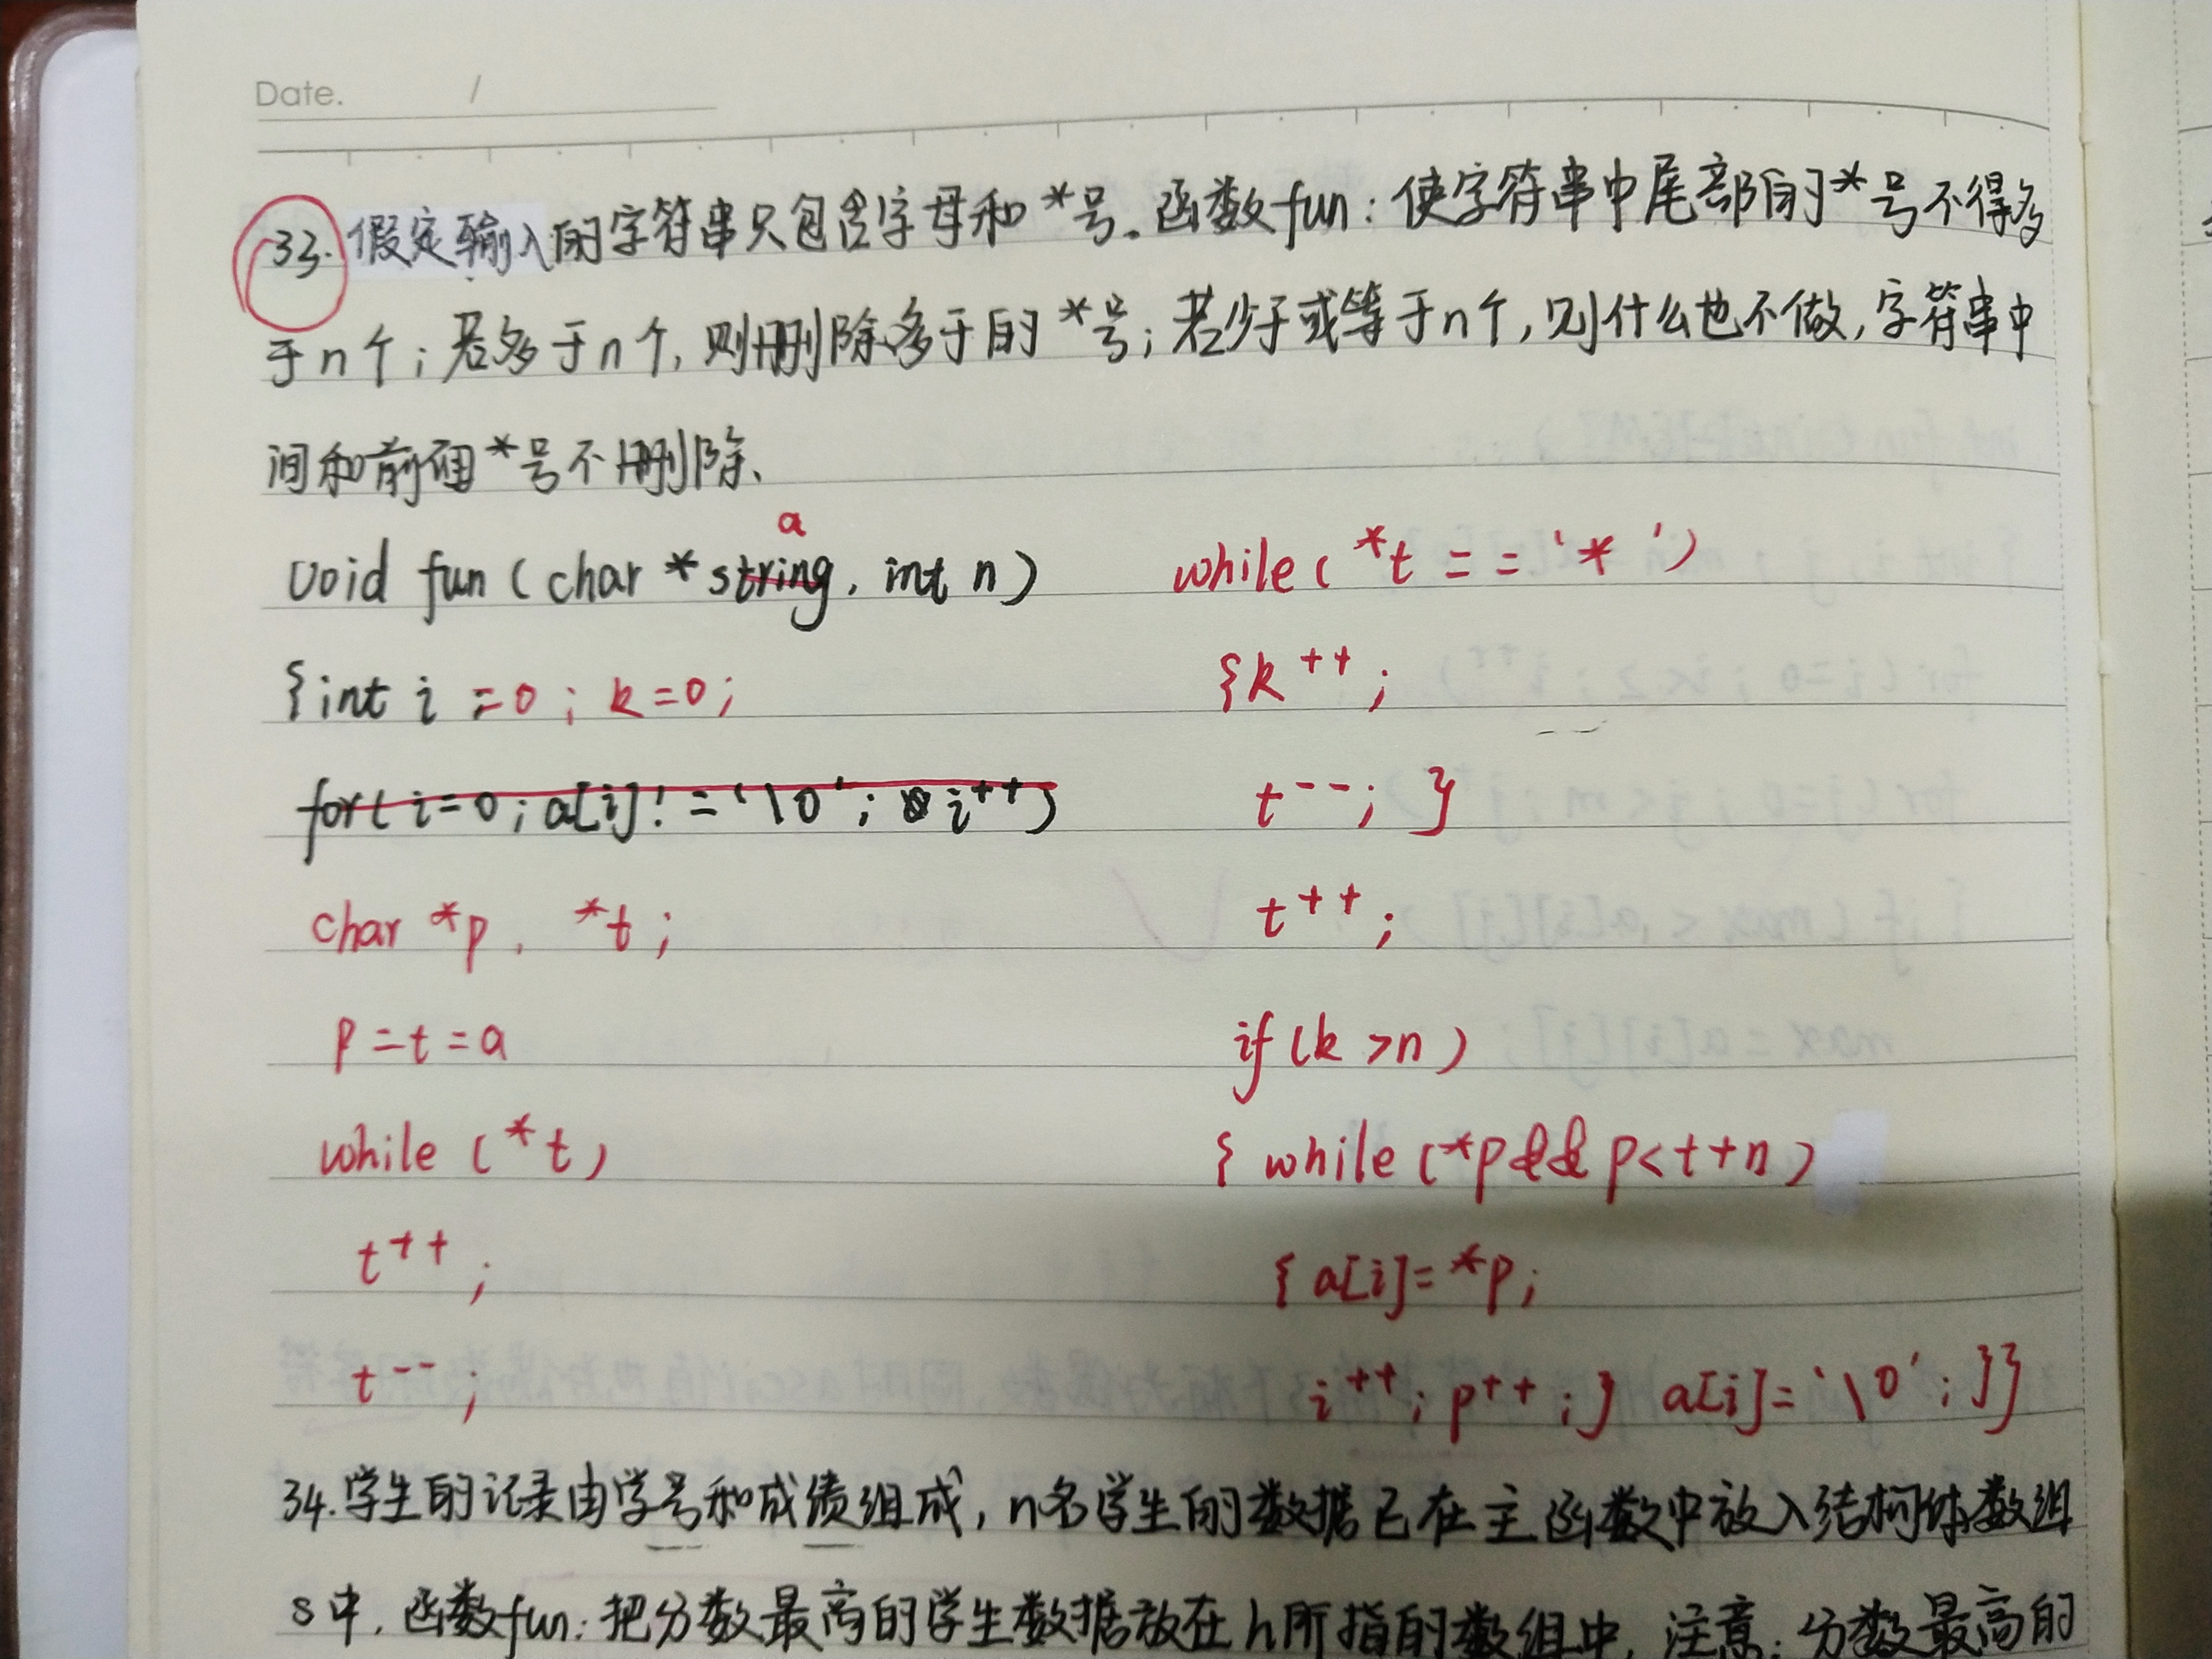 Date. /
33. 假定输入的字符串只包含字母和*号。函数fun:使字符串中尾部的*号不得多
于n个;若多于n个,则删除多于的*号;若少于或等于n个,则什么也不做,字符串中
间和前面*号不删除、
a
void fun (char *string, int n)
{int i =0; k=0;
for( i=0; a[i]! = '\0'; i++)
char *p, *t;
p=t=a
while (*t)
t++;
t--;
while ( *t == '*')
{k++;
t--; }
t++;
if (k>n)
{ while (*p&&p<t+n)
{ a[i]=*p;
i++; p++;} a[i]='\0';}}
34.学生的记录由学号和成绩组成,n名学生的数据已在主函数中放入结构体数组
s中,函数fun:把分数最高的学生数据放在h所指的数组中,注意:分数最高的